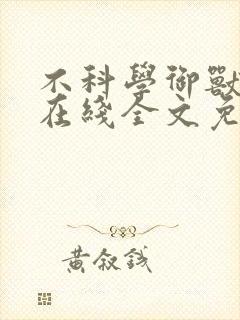 不科學御獸
在綫全文免
黃叙錢